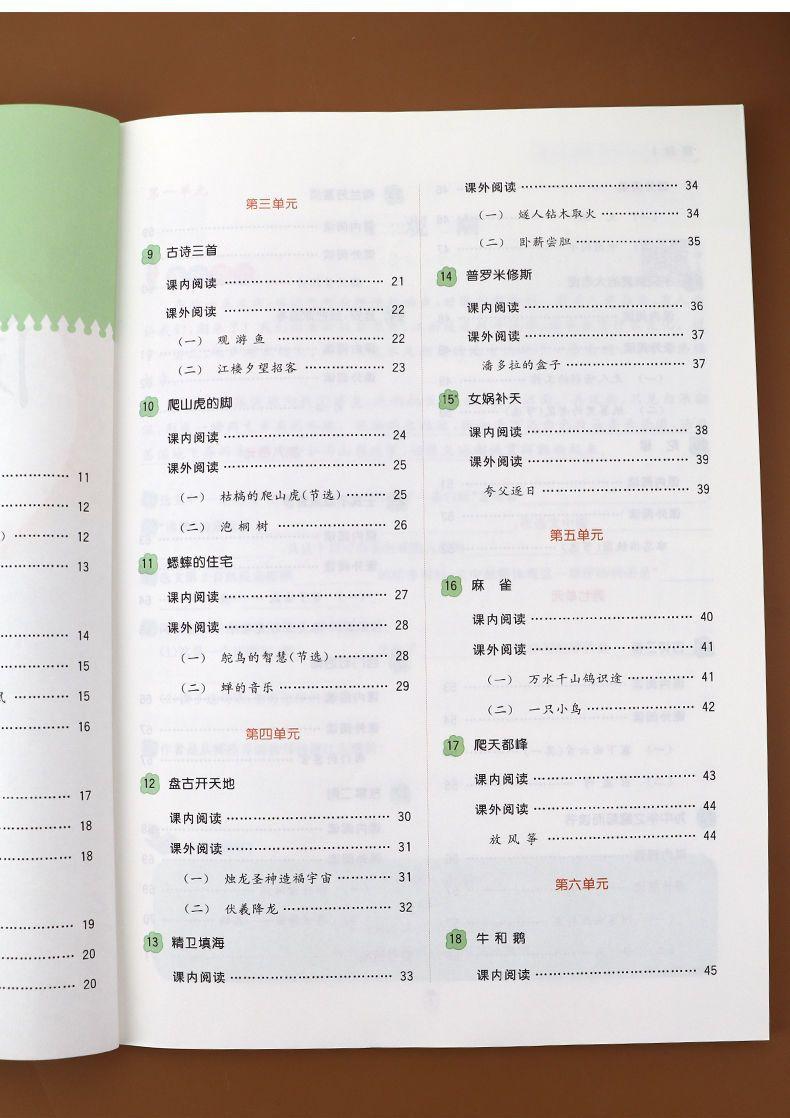 11
12
） 12
13
14
15
鼠 15
16
17
18
18
19
20
20
第三单元
9 古诗三首
课内阅读 21
课外阅读 22
（一） 观游鱼 22
（二） 江楼夕望招客 23
10 爬山虎的脚
课内阅读 24
课外阅读 25
（一） 枯槁的爬山虎(节选) 25
（二） 泡桐树 26
11 蟋蟀的住宅
课内阅读 27
课外阅读 28
（一） 鸵鸟的智慧(节选) 28
（二） 蝉的音乐 29
第四单元
12 盘古开天地
课内阅读 30
课外阅读 31
（一） 烛龙圣神造福宇宙 31
（二） 伏羲降龙 32
13 精卫填海
课内阅读 33
课外阅读 34
（一） 燧人钻木取火 34
（二） 卧薪尝胆 35
14 普罗米修斯
课内阅读 36
课外阅读 37
潘多拉的盒子 37
15* 女娲补天
课内阅读 38
课外阅读 39
夸父逐日 39
第五单元
16 麻雀
课内阅读 40
课外阅读 41
（一） 万水千山鸽识途 41
（二） 一只小鸟 42
17 爬天都峰
课内阅读 43
课外阅读 44
放风筝 44
第六单元
18 牛和鹅
课内阅读 45